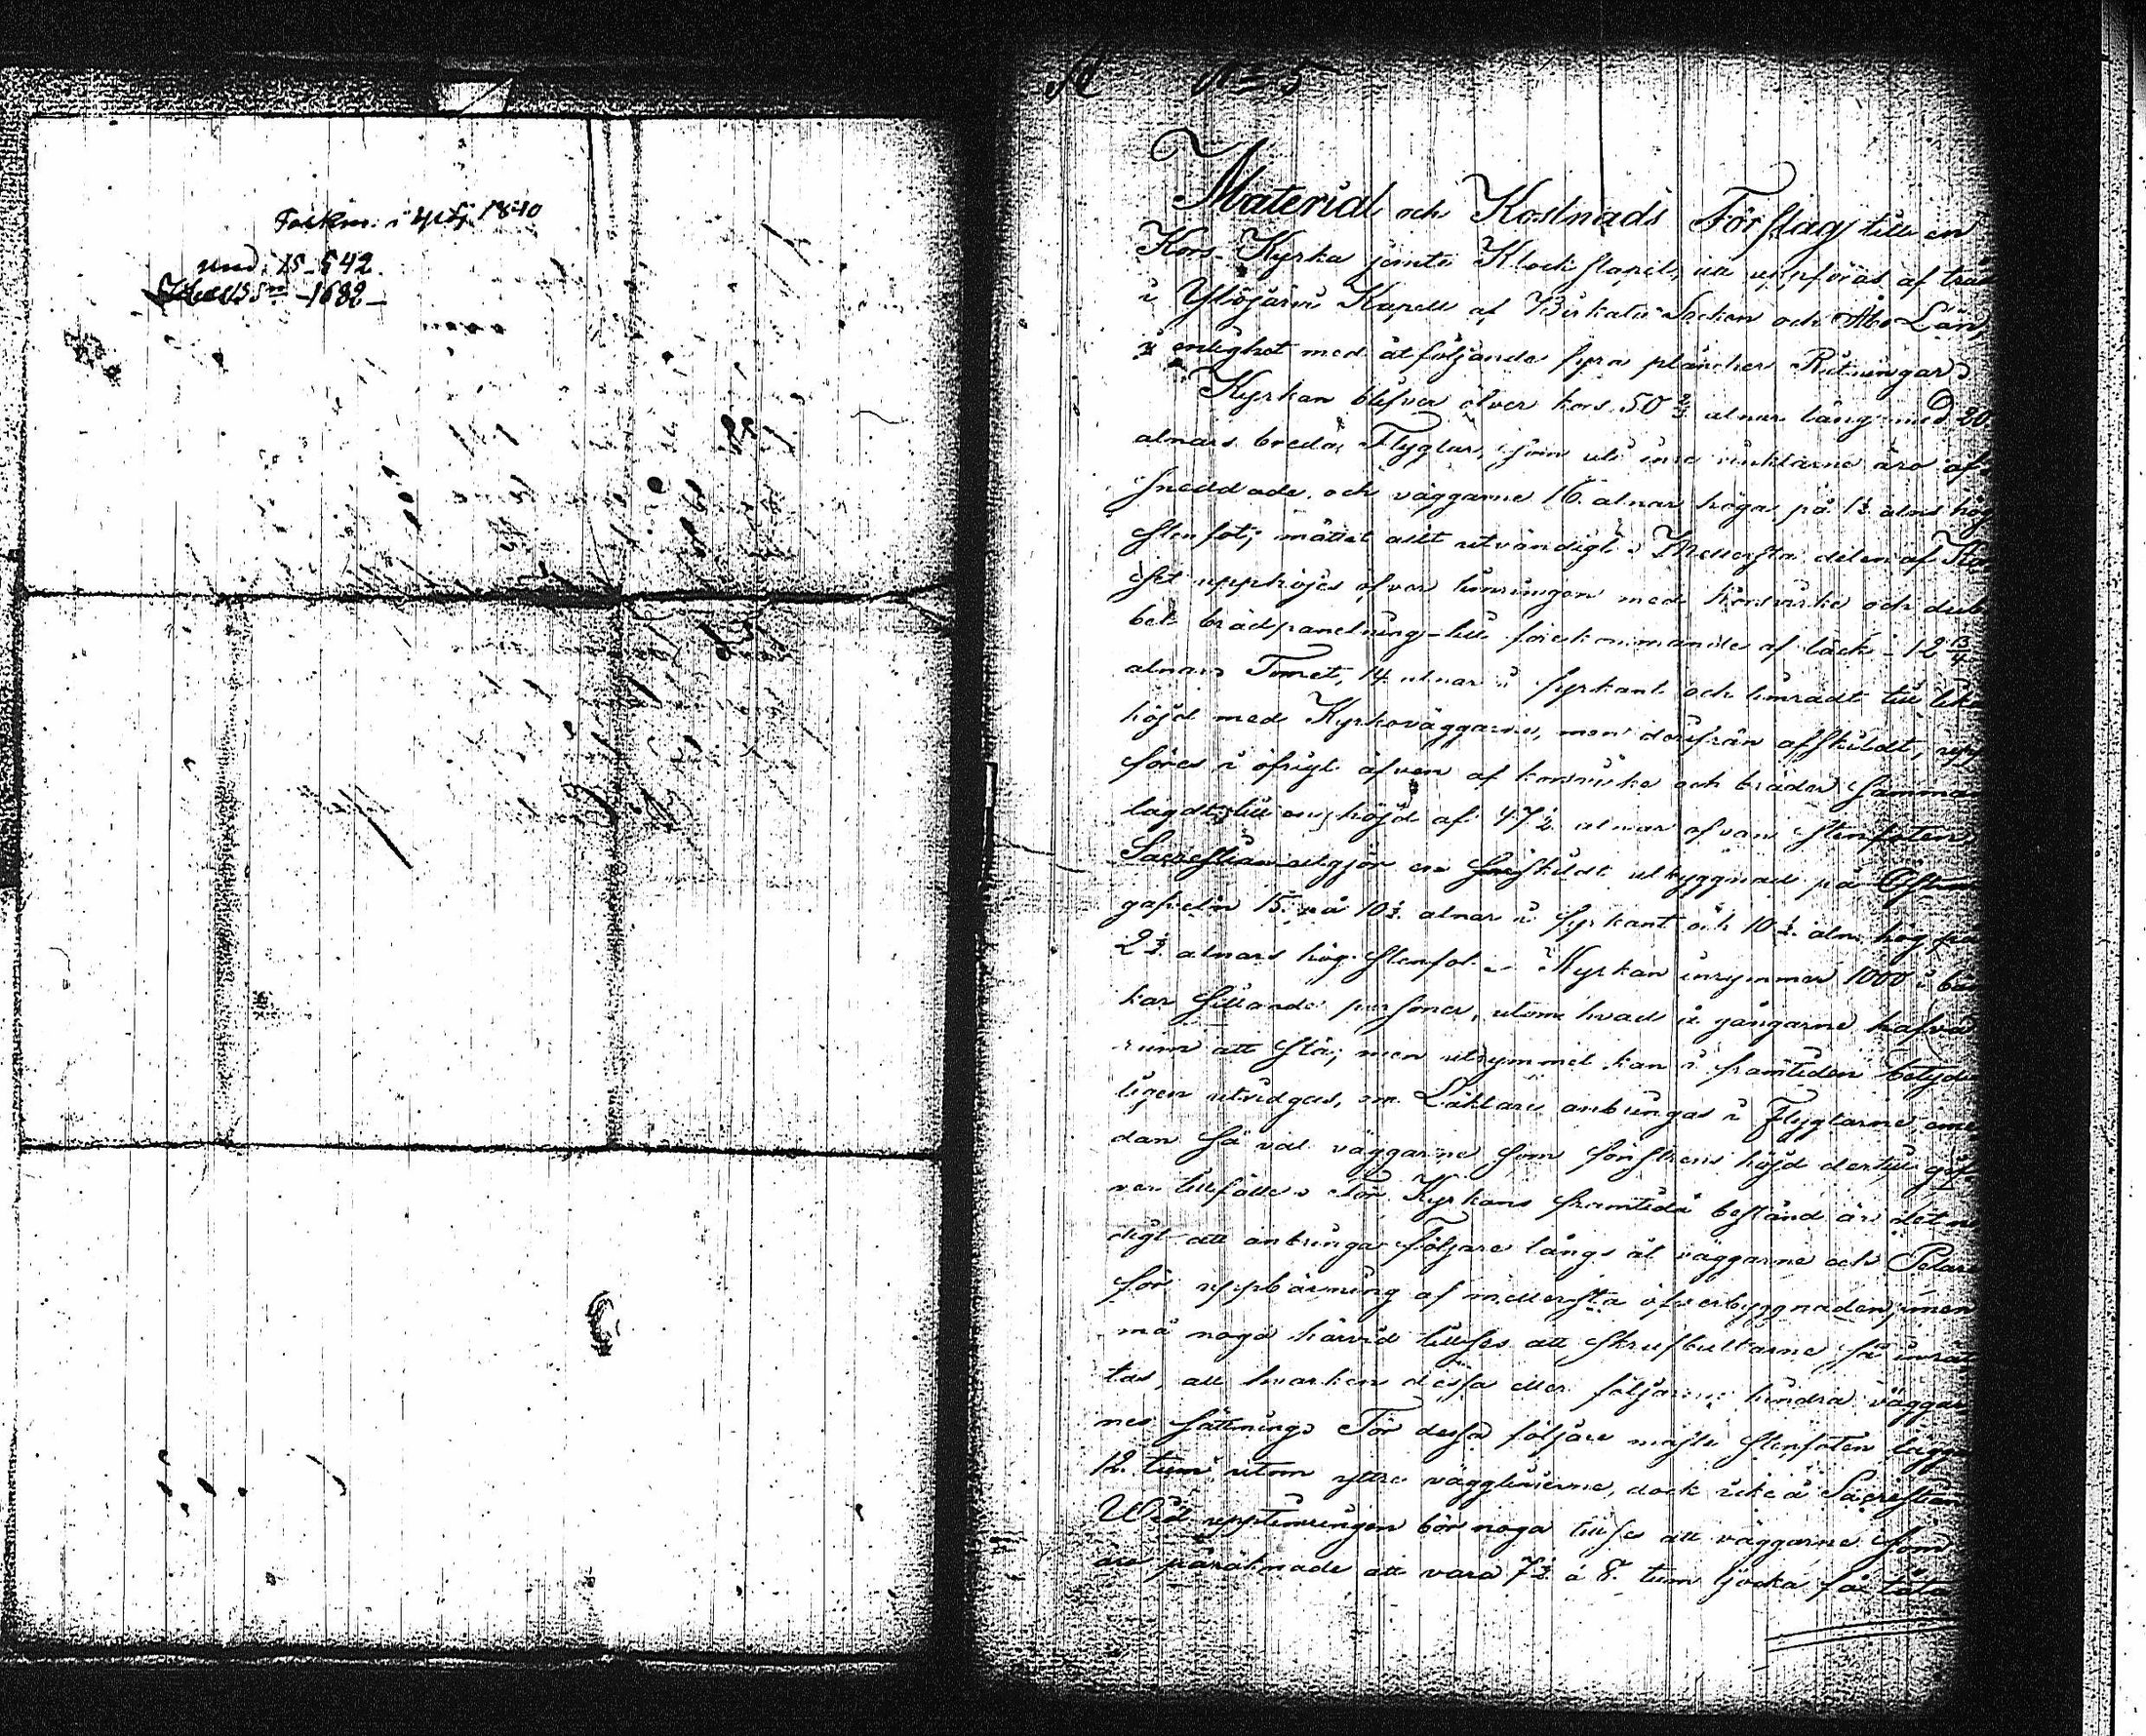 Folkm: i Ylöj. 1840
und. 15 - 542
öfver 15 - 1682 -
No 5
Material och Kostnads Förslag till en
Kors-Kyrka jemte Klockstapel, att uppföras af träd
i Ylöjärvi Kapell af Birkala Socken och Åbo Län,
i enlighet med åtföljande fyra plancher Ritningar.
Kyrkan blifver öfver kors 50 alnar lång med 20.
alnars breda Flyglar, som uti inre vinklarne äro af-
sneddade, och väggarne 16 alnar höga på 1½ alns hög
stenfot; måttet allt utvändigt. Mellersta delen af Kor
set upphöjes ofvan timringen med korsvirke och dub
bel brädpanelning - till förekommande af läck - 12 3/4
alnar. Tornet, 14 alnar i fyrkant och timradt till lika
höjd med Kyrkoväggarne, men derifrån afskildt, upp
föres i öfrigt äfven af korsvirke och bräder samman
lagdt till en höjd af 47½ alnar ofvan stenfoten.
Sacrestian utgör en särskildt utbyggnad på Östra
gafveln 15 på 10½ alnar i fyrkant och 10½ aln hög på
2½ alnars hög stenfot. Kyrkan inrymmer 1000 i bän
kar sittande personer, utom hvad i gångarne hafva
rum att stå; men utrymmet kan i framtiden betyd
ligen utvidgas, om Läktare anbringas i Flyglarne eme
dan så väl väggarne som fönstrens höjd dertill gif
ver tillfälle. För Kyrkans framtida bestånd är det nö
digt att anbringa Följare längs åt väggarne och Pelare
för uppbärning af mellersta öfverbyggnaden, men
må noga härvid tillses att skrufbultarne så inrät
tas, att hvarken dessa eller följarne hindra väggar
nes sättning. För dessa följare måste stenfoten läggas
12 tum utom yttre vägglinierne, dock icke å Sacrestian
Wid upptimringen bör noga tillses att väggarne som
äro påräknade att vara 7½ à 8 tum tjocka så täta